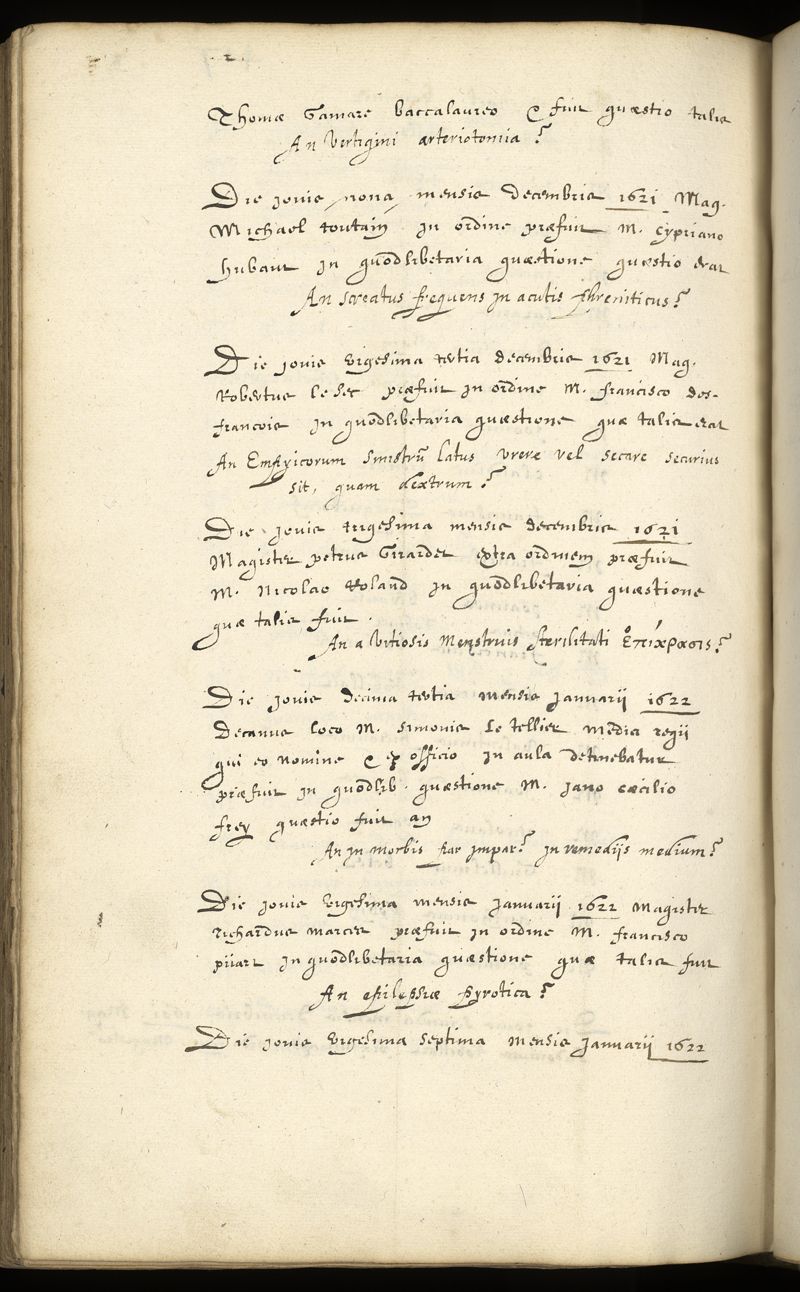 .2.
Thomæ Gamare baccalaureo & fuit quæstio talis
An Vertigini arteriotomia?
Die jovis nona mensis decembris 1621 Mag.
Michael toutain in ordine præfuit M. Cypriano
hubaut in quodlibetaria quæstione quæstio erat
An screatus frequens in acutis phreniticus?
Die jovis vigesima tertia decembris 1621 Mag.
Robertus le sec præfuit in ordine M. francisco des-
francois in quodlibetaria quæstione quæ talis erat
An Empyicorum sinistrũ latus urere vel secare securius
sit, quam dextrum?
Die jovis trigesima mensis decembris 1621
Magister petrus Girardet extra ordinem præfuit
M. Nicolao Roland in quodlibetaria quæstione
quæ talis fuit.
An a vitiosis Menstruis sterilitati ἐπίκρασις?
Die jovis decima tertia mensis Januarij 1622
Decanus loco M. Simonis Le tellier Medici regij
qui eo nomine & ex officio in aula detinebatur
præfuit in quodlib. quæstione M. Jano cæcilio
frey quæstio fuit an
An in morbis par impar? in remedijs medium?
Die jovis vigesima mensis Januarij 1622 Magister
richardus marces præfuit in ordine M. francisco
pijart in quodlibetaria quæstione quæ talis fuit
An epilepsiæ pyrotica?
Die jovis vigesima septima mensis Januarij 1622